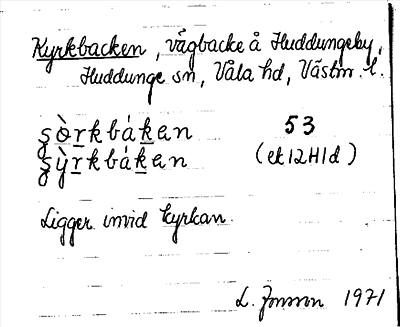 Kyrkbacken, vägbacke å Huddungeby,
Huddunge sn, Våla hd, Västm. l.
ş̀òṟkbáḵen 53
şỳṟkbáḵen (ek12H1d)
Ligger invid kyrkan.
L. Jonsson 1971